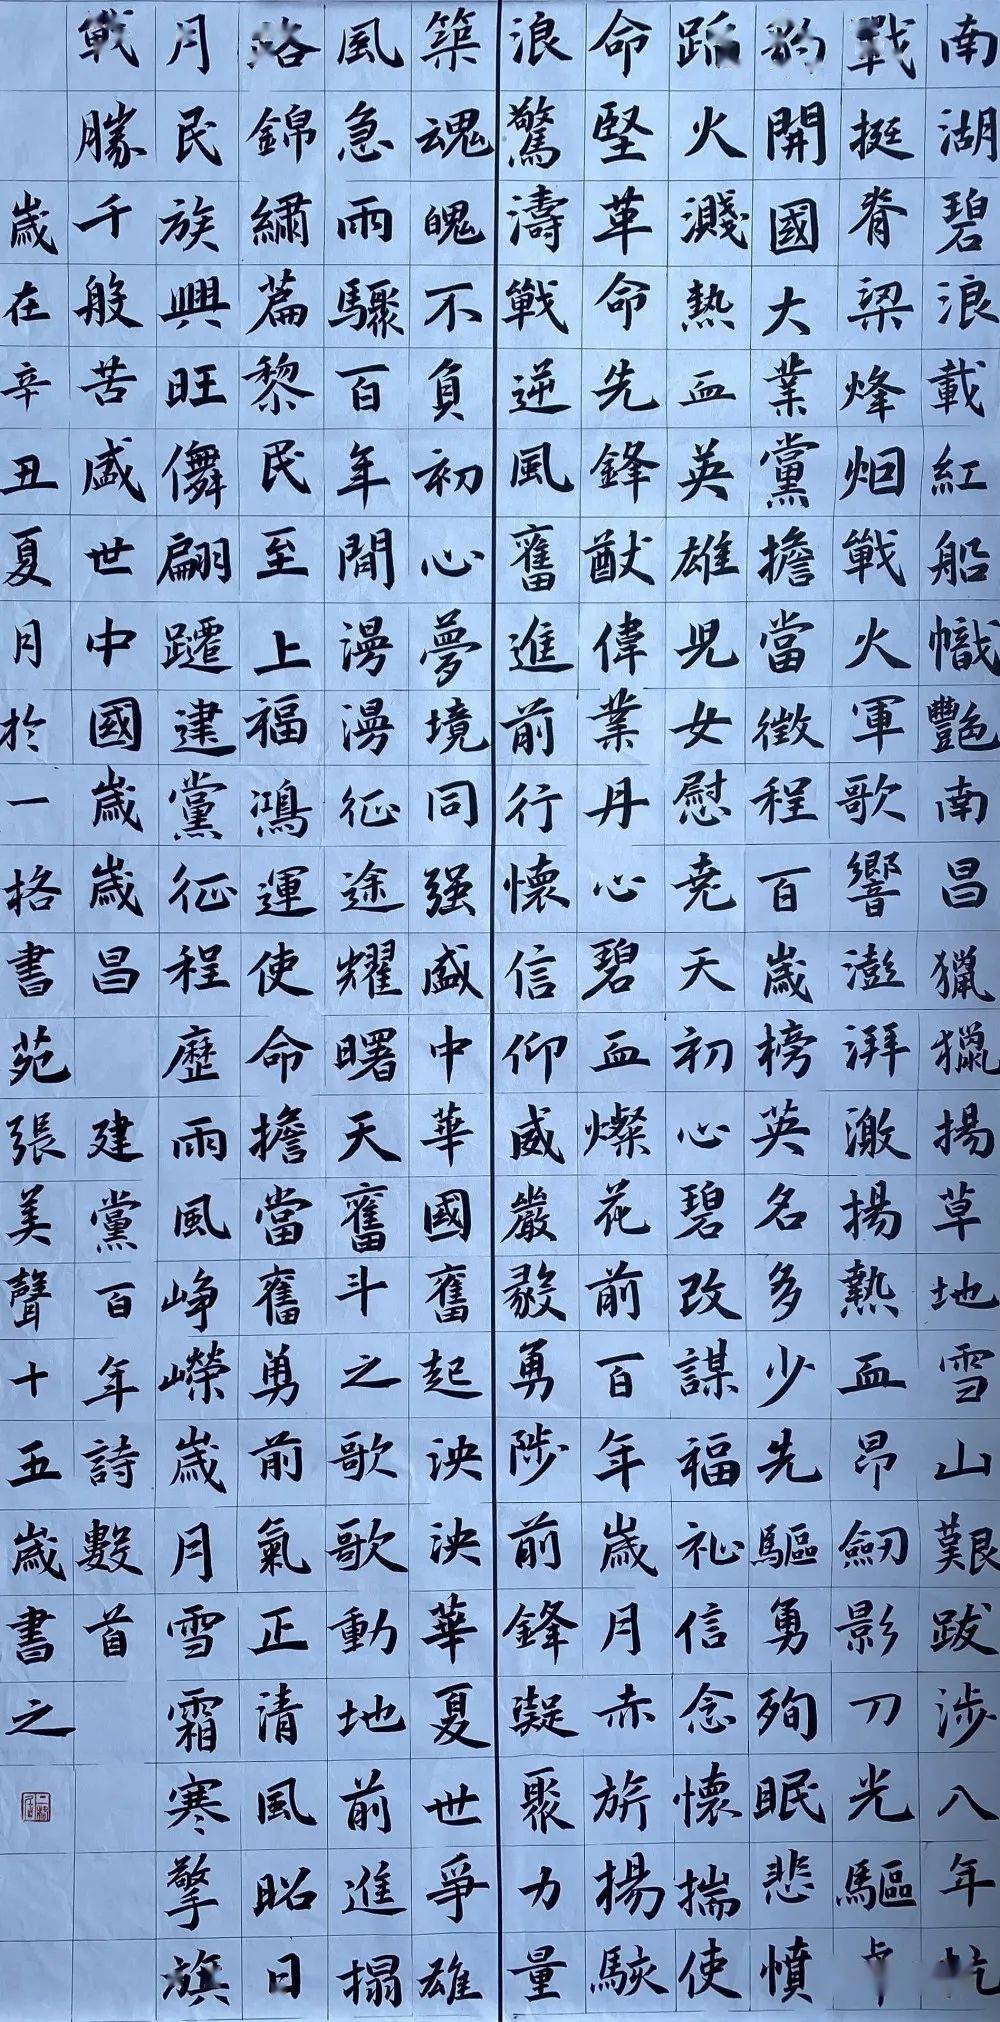 南湖碧浪載紅船幟豔南昌獵獵揚草地雪山艱跋涉八年
戰挺脊梁烽烟戰火軍歌響澎湃激揚熱血昂劒影刀光驅
開國大業黨擔當徵程百歲榜英名多少先驅勇殉眠悲憤
火濺熱血英雄兒女慰堯天初心碧改謀福祉信念懷揣使
命堅革命先鋒猷偉業丹心碧血燦花前百年歲月赤旂揚駭
浪驚濤戰逆風奮進前行懷信仰威嚴毅勇陟前鋒凝聚力量
築魂魄不負初心夢境同强盛中華國奮起泱泱華夏世爭雄
風急雨驟百年間漫漫征途耀曙天奮斗之歌歌動地前進搨
路錦繡篇黎民至上福鴻運使命擔當奮勇前氣正清風昭日
月民族興旺儛翩躚建黨征程歷雨風崢嶸歲月雪霜寒擎旗
戰勝千般苦盛世中國歲歲昌 建黨百年詩數首
歲在辛丑夏月於一格書苑張美聲十五歲書之